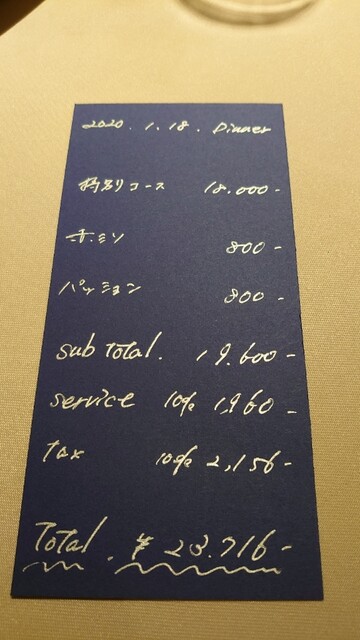 2020. 1. 18. Dinner
特別コース 18.000-
赤ミソ 800-
パッション 800-
sub Total. 19.600-
service 10% 1,960-
tax 10% 2,156-
Total. ¥ 23.716-